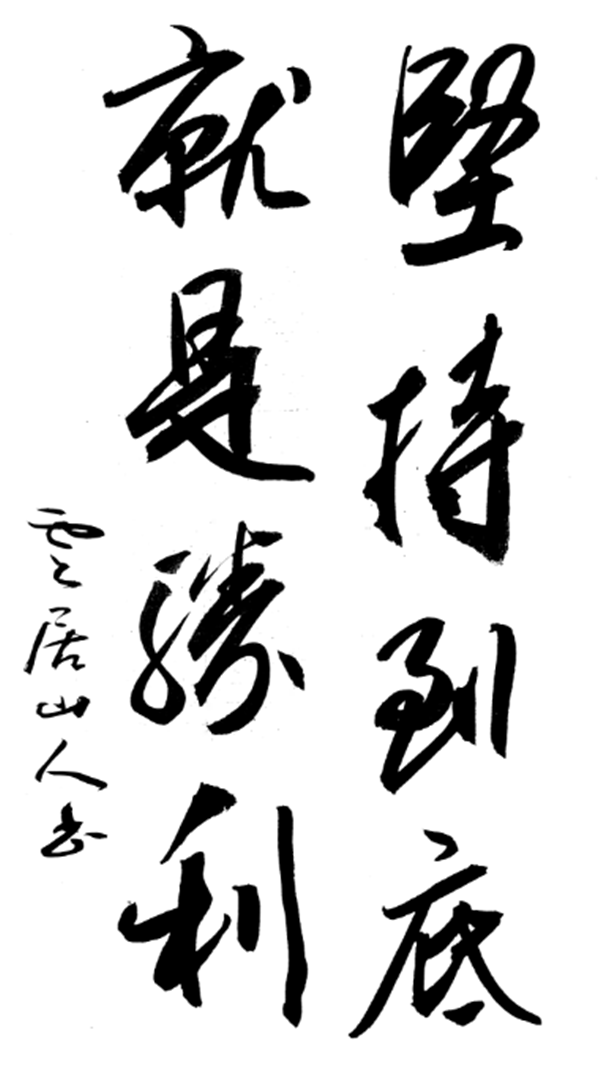 堅持到底
就是勝利
雲居山人书